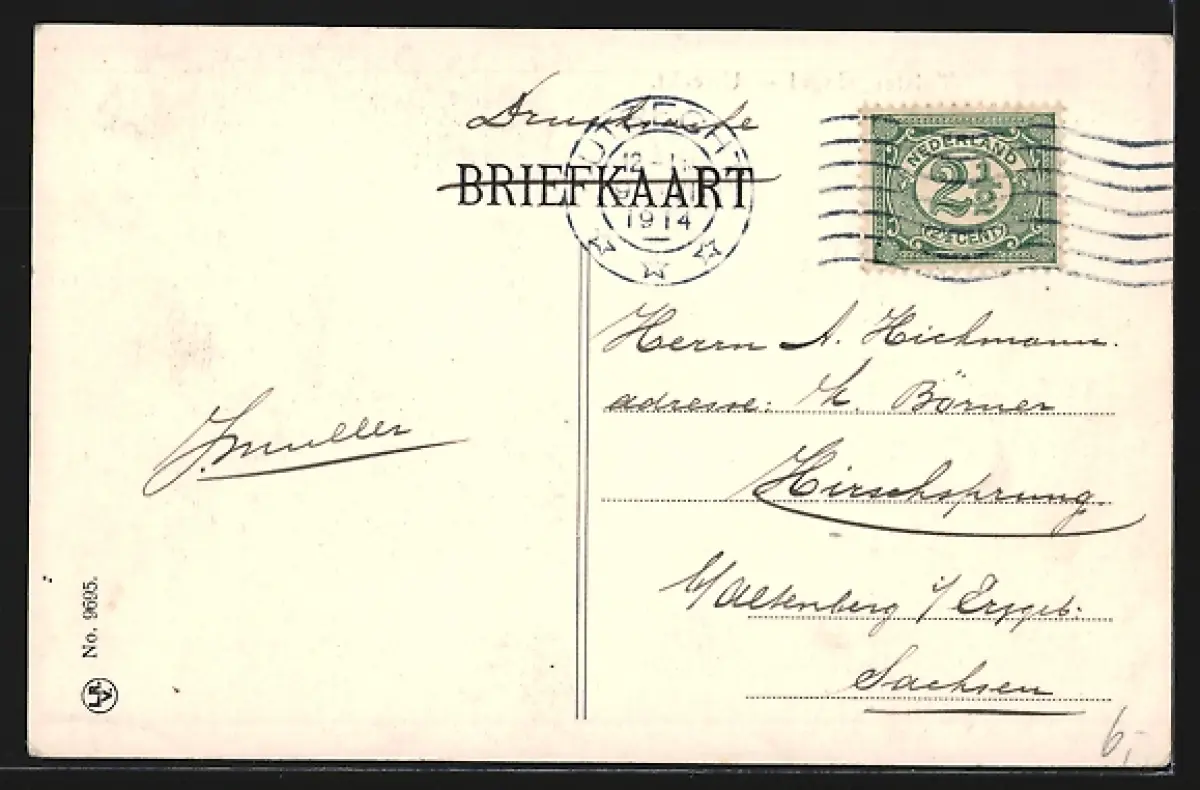 Drucksache
BRIEFKAART
UTRECHT
12-1
1914
NEDERLAND
2½
2½ CENT
Herrn A. Hichmann.
adresse: H. Börner
Hirschsprung.
b/Altenberg i/Erzgeb:
Sachsen
J. Muller
No. 9695.
6,-